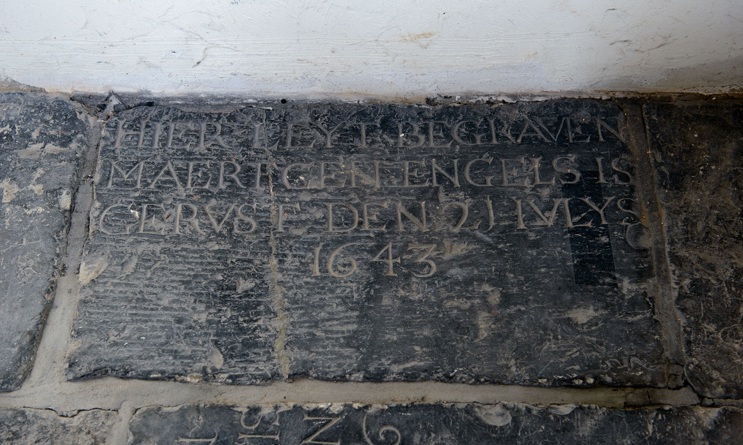 HIER LEYT BEGRAVEN
MAERTGEN ENGELS IS
GERVST DEN 21 IVLYS
1643